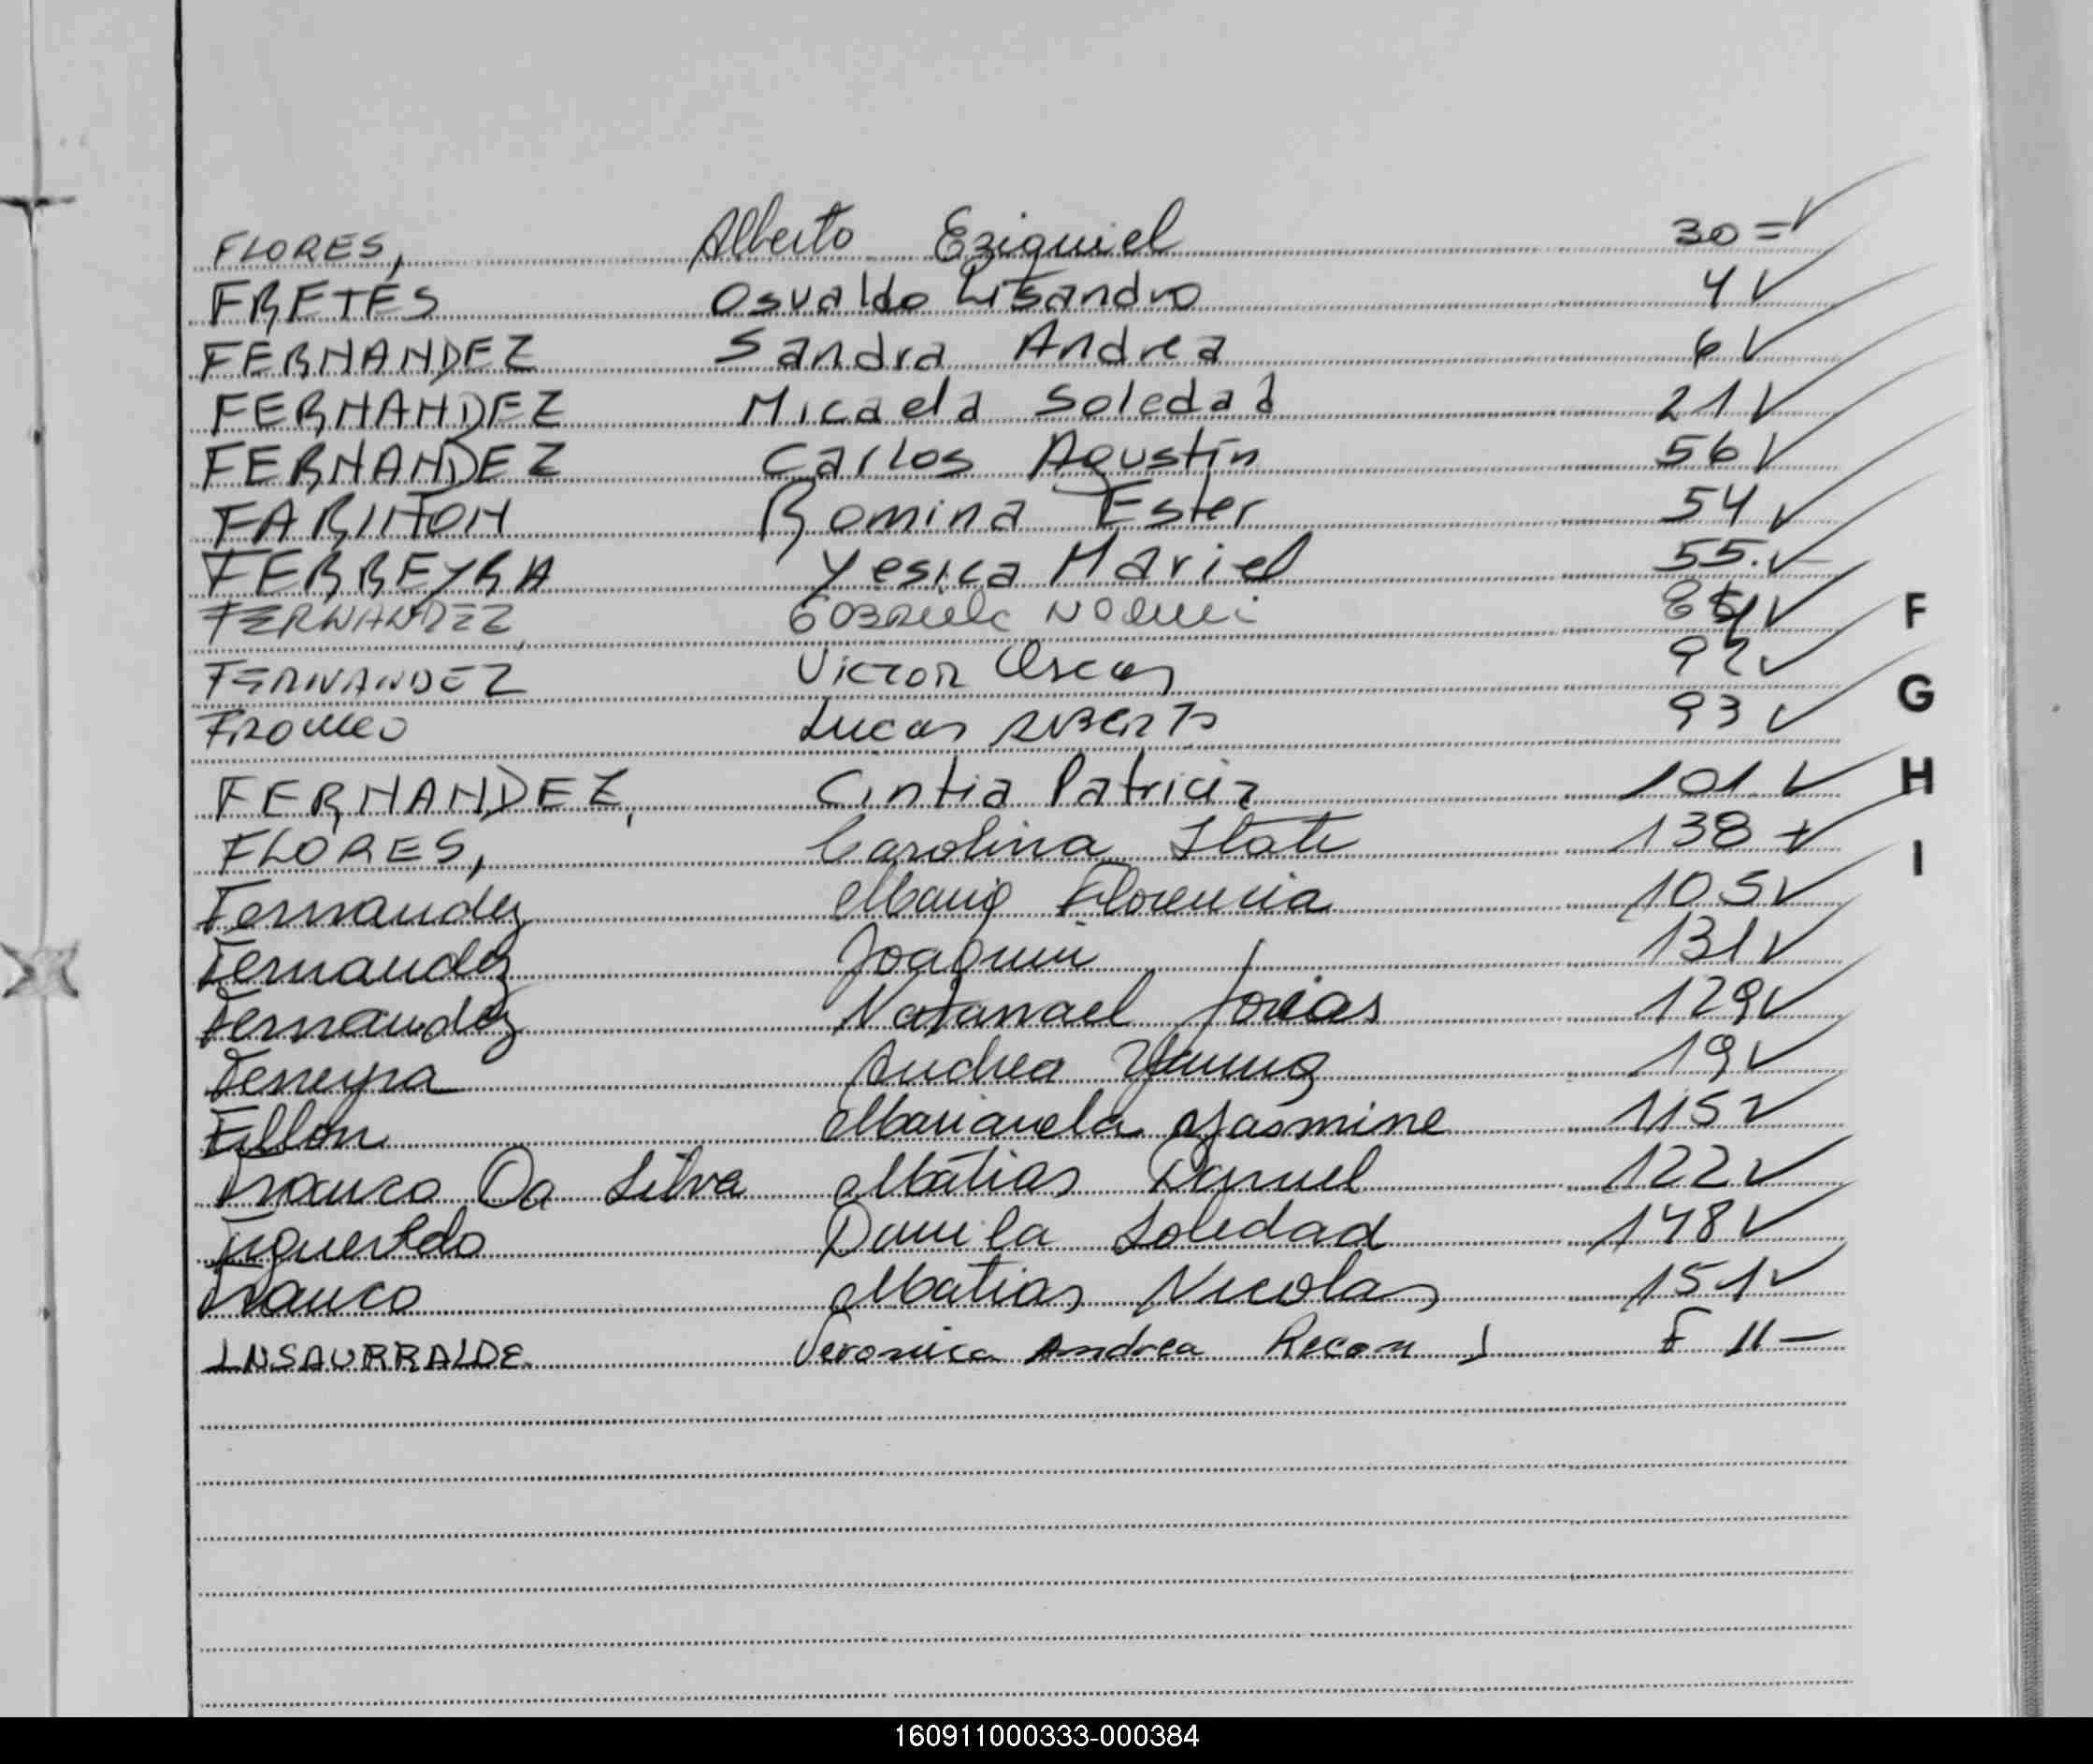 FLORES, Alberto Eziquiel 30=✓
FRETES Osvaldo Lisandro 4✓
FERNANDEZ Sandra Andrea 6✓
FERNANDEZ Micaela Soledad 21✓
FERNANDEZ Carlos Agustin 56✓
FARIÑON Romina Ester 54✓
FERREYRA Yesica Mariel 55.✓
FERNANDEZ Noemi ✓
FERNANDEZ Victor Oscar 92✓
Lucas Alberto 93✓
FERNANDEZ, Cintia Patricia 101✓
FLORES, Carolina Itati 138✓
Fernandez Maria Florencia 105✓
Fernandez Joaquin 131✓
Fernandez Natanael Josias 129✓
Ferreyra Andrea 19✓
Fillon Marianela Yasmine 115✓
Franco Da Silva Matias Daniel 122✓
Figueredo Daniela Soledad 148✓
Franco Matias Nicolas 151✓
INSAURRALDE Veronica Andrea Recon F 11—
F
G
H
I
160911000333-000384